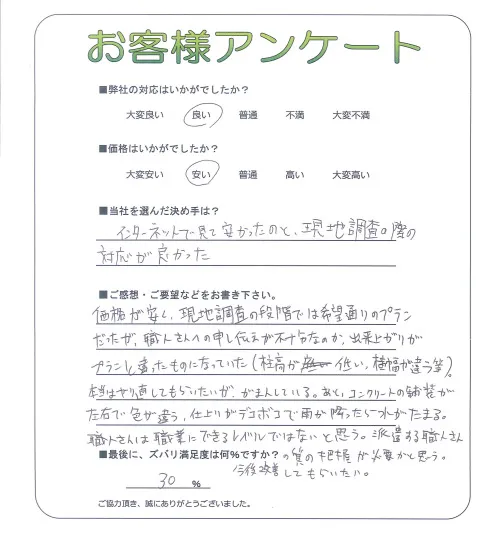 お客様アンケート
■弊社の対応はいかがでしたか?
大変良い 良い 普通 不満 大変不満
■価格はいかがでしたか?
大変安い 安い 普通 高い 大変高い
■当社を選んだ決め手は?
インターネットで見て安かったのと、現地調査の際の
対応が良かった
■ご感想・ご要望などをお書き下さい。
価格が安く、現地調査の段階では希望通りのプラン
だったが、職人さんへの申し伝えが不十分なのか、出来上がりが
プランと違ったものになっていた(柱高が 低い、横幅が違う等)。
本当はやり直してもらいたいが、がまんしている。あと、コンクリートの舗装が
左右で色が違う、仕上りがデコボコで雨が降ったら水がたまる。
職人さんは職業にできるレベルではないと思う。派遣する職人さん
の質の把握が必要かと思う。
■最後に、ズバリ満足度は何%ですか?
今後改善してもらいたい。
30 %
ご協力頂き、誠にありがとうございました。